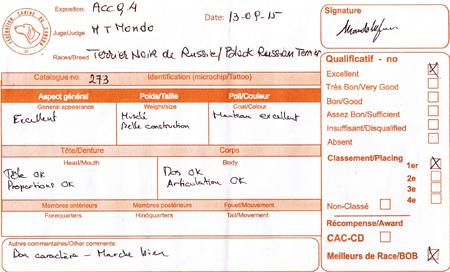 Exposition: ACCQ.4 Date: 13-09-15
Juge/Judge MT Mondo
Races/Breed Terrier Noir de Russie/Black Russian Terrier
Signature
Catalogue no. 273 Identification (microchip/Tattoo)
Aspect général Poids/Taille Poil/Couleur
General appearance Weight/size Coat/Colour
Excellent Musclé Manteau excellent
Belle construction
Tête/Denture Corps
Head/Mouth Body
Tête OK Dos OK
Proportions OK Articulation OK
Membres antérieurs Membres postérieurs Fouet/Mouvement
Forequarters Hindquarters Tail/Movement
Autres commentaires/Other comments:
Bon caractère - Marche bien
Qualificatif - no
Excellent
Très Bon/Very Good
Bon/Good
Assez Bon/Sufficient
Insuffisant/Disqualified
Absent
Classement/Placing
1er
2e
3e
4e
Non-Classé
Récompense/Award
CAC-CD
Meilleurs de Race/BOB